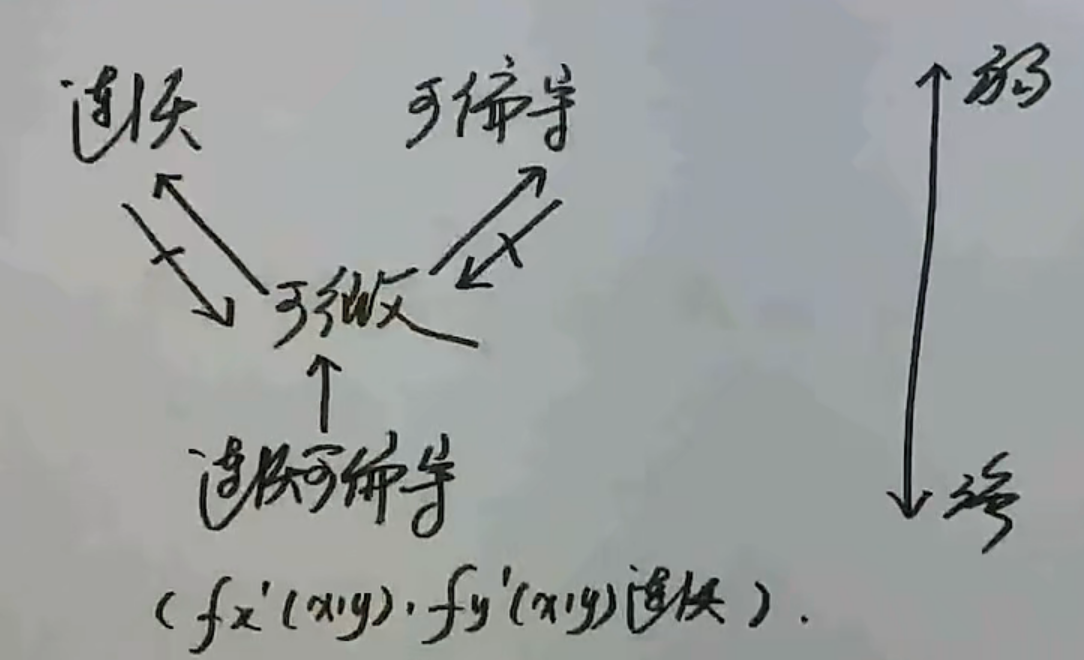 连续 可偏导 弱
可微
连续可偏导
强
(fx'(x,y), fy'(x,y)连续).